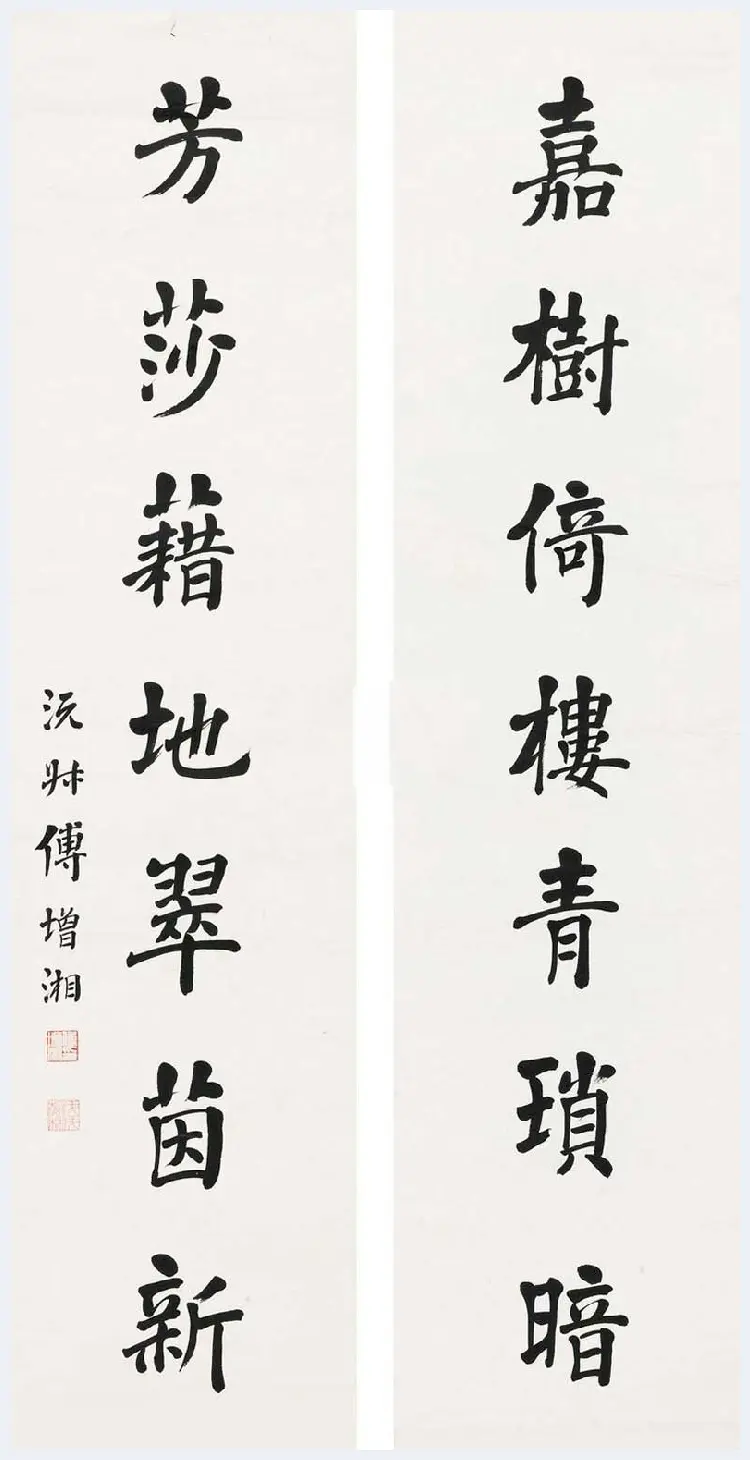 嘉樹倚樓青瑣暗
芳莎藉地翠茵新
沅叔傅增湘